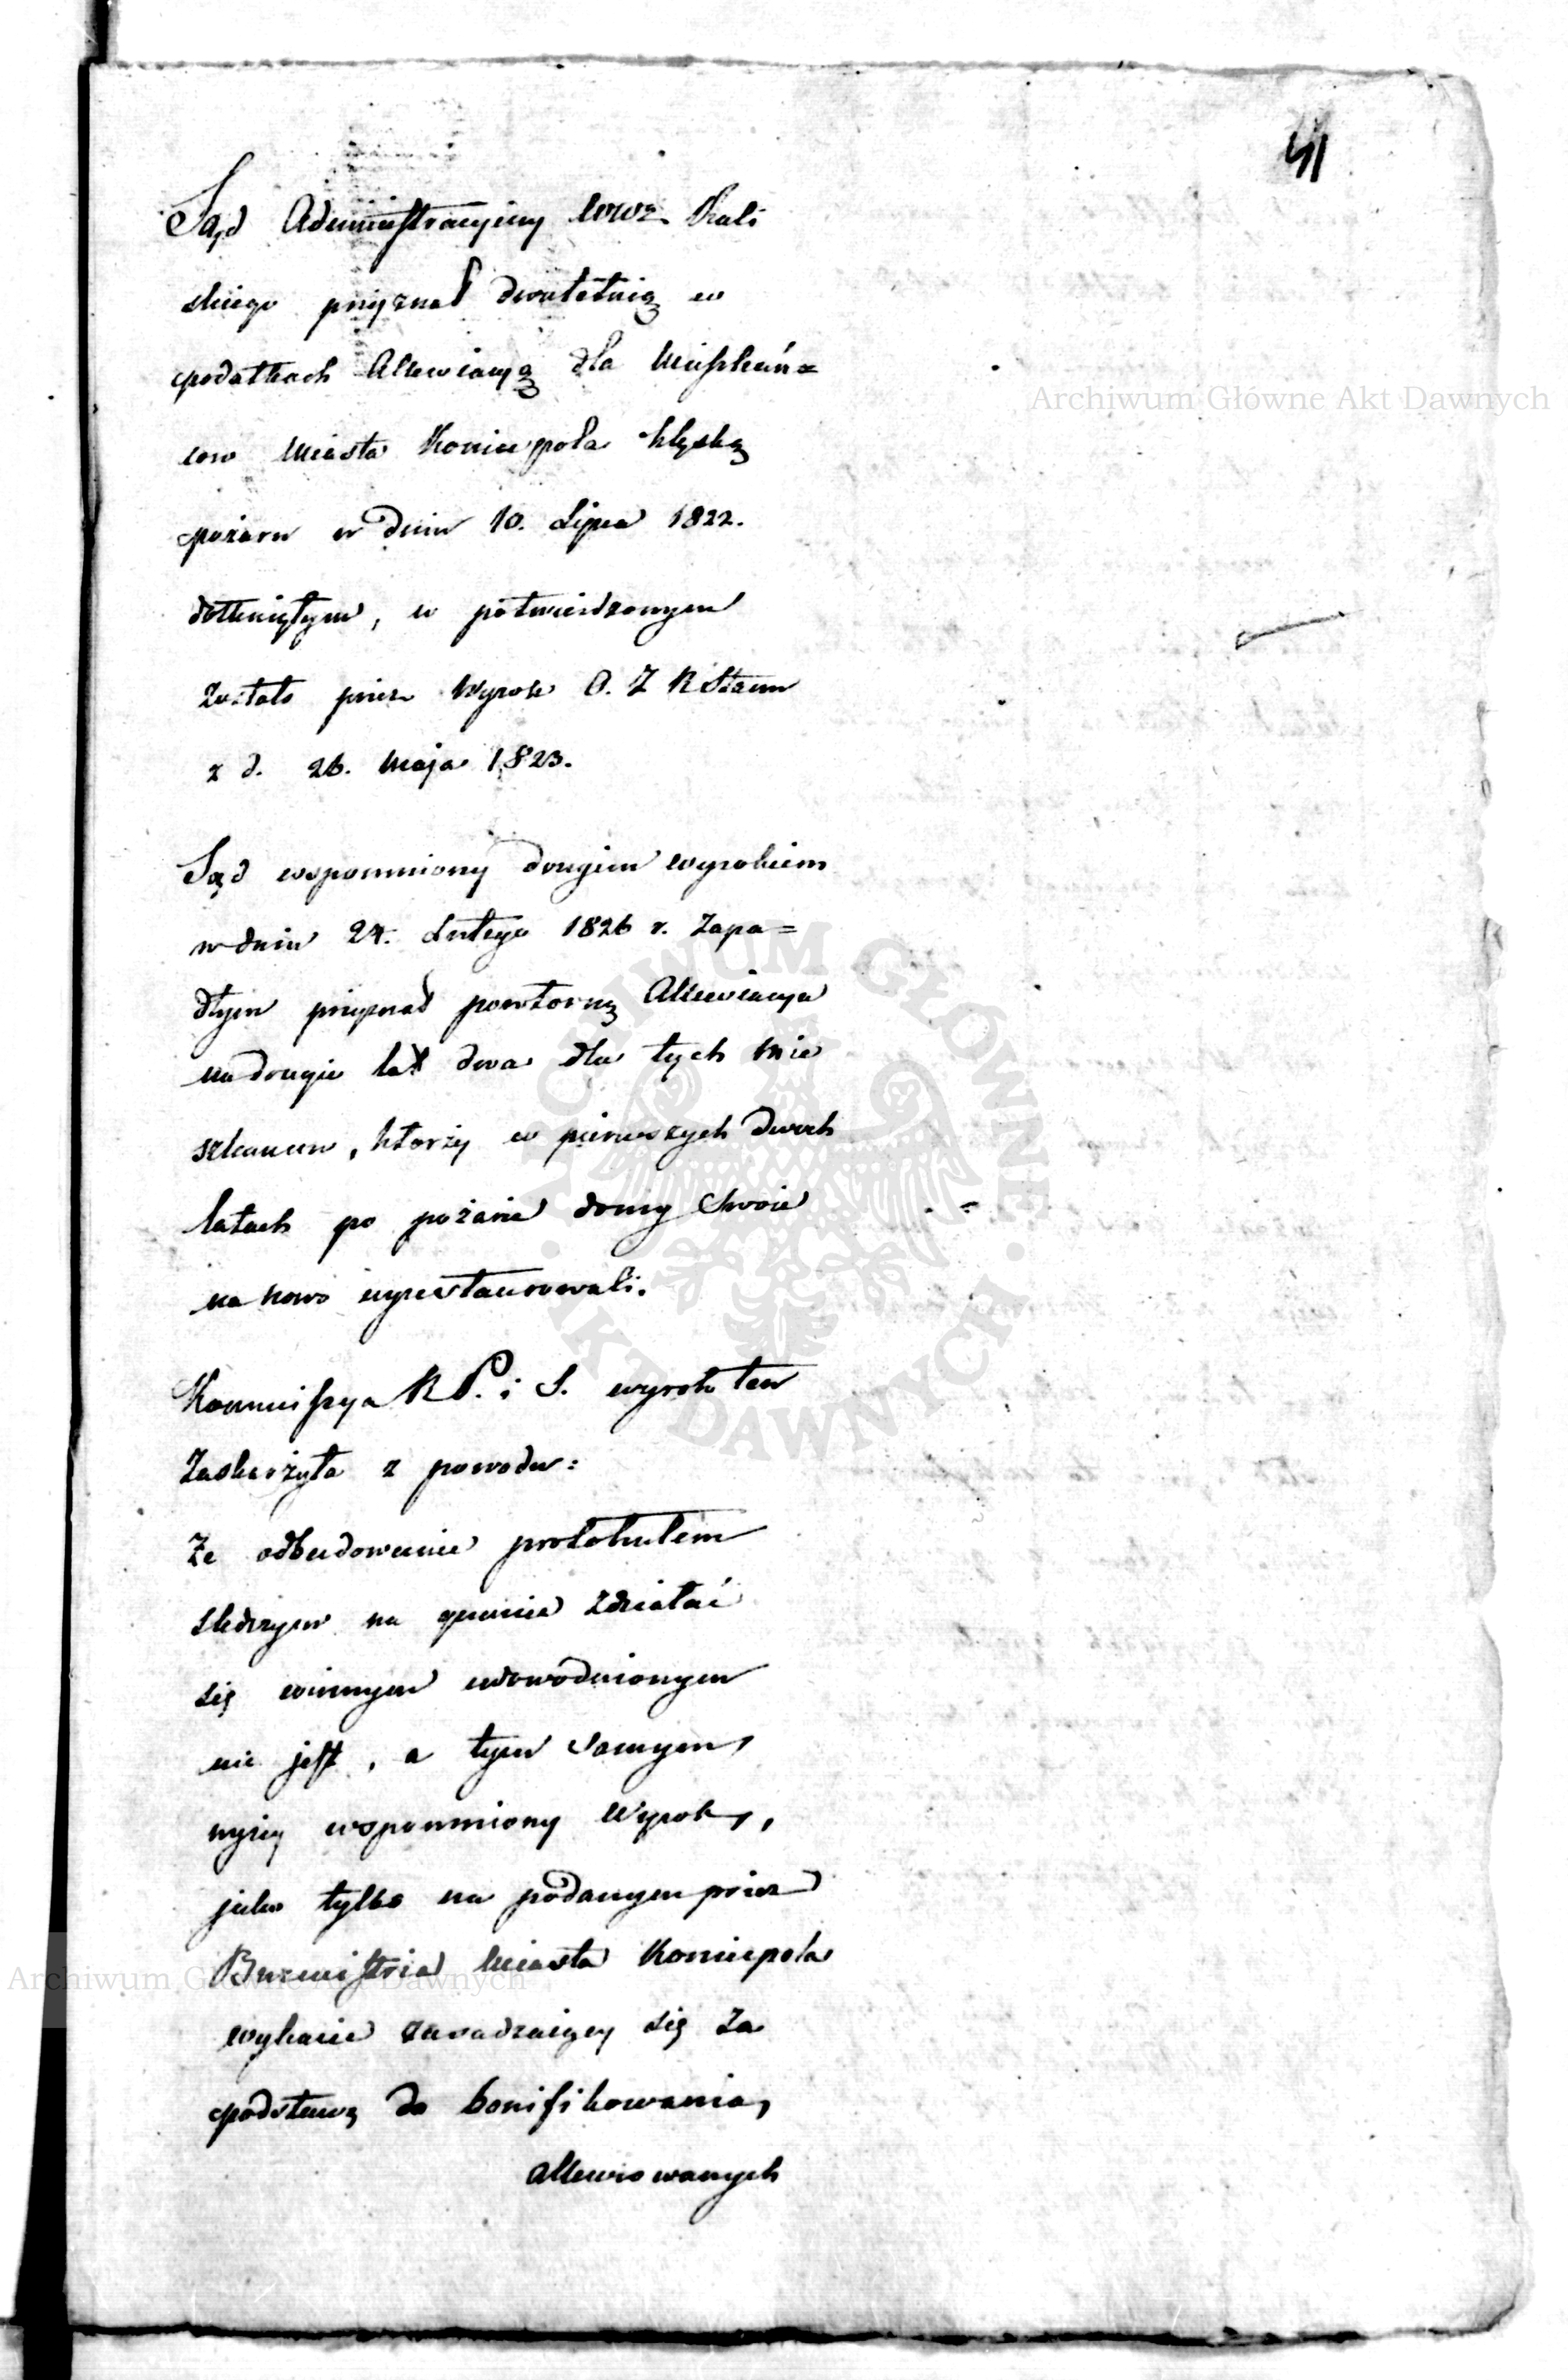 41
Sąd Administracyiny Wwa Kali
skiego przyznał dwuletnią w
podatkach Allewiacyą dla Mieszkań=
ców Miasta Koniecpola klęską
pożaru w dniu 10. Lipca 1822.
dotkniętym, co potwierdzonym
zostało przez Wyrok O. Z R Stanu
z d. 26. Maja 1823.
Sąd wspomniony drugim wyrokiem
w dniu 24. Lutego 1826 r. zapa=
dłym przyznał powtorną Allewiacyą
na drugie lat dwa dla tych mie
szkancow, którzy w pierwszych dwóch
latach po pożarze domy swoie
na nowo wyrestaurowali.
Kommissya R P. i S. wyrok ten
Zaskarżyła z powodu:
Że odbudowanie protokułem
śledczym na gruncie zdziałać
się winnym udowodnionym
nie jest, a tym samym,
wyżey wspomniony Wyrok,
jako tylko na podanym przez
Burmistrza Miasta Koniecpola
wykazie zasadzaiący się za
podstawę do bonifikowania,
allewiowanych
Archiwum Główne Akt Dawnych
Archiwum Główne Akt Dawnych
ARCHIWUM GŁÓWNE
AKT DAWNYCH